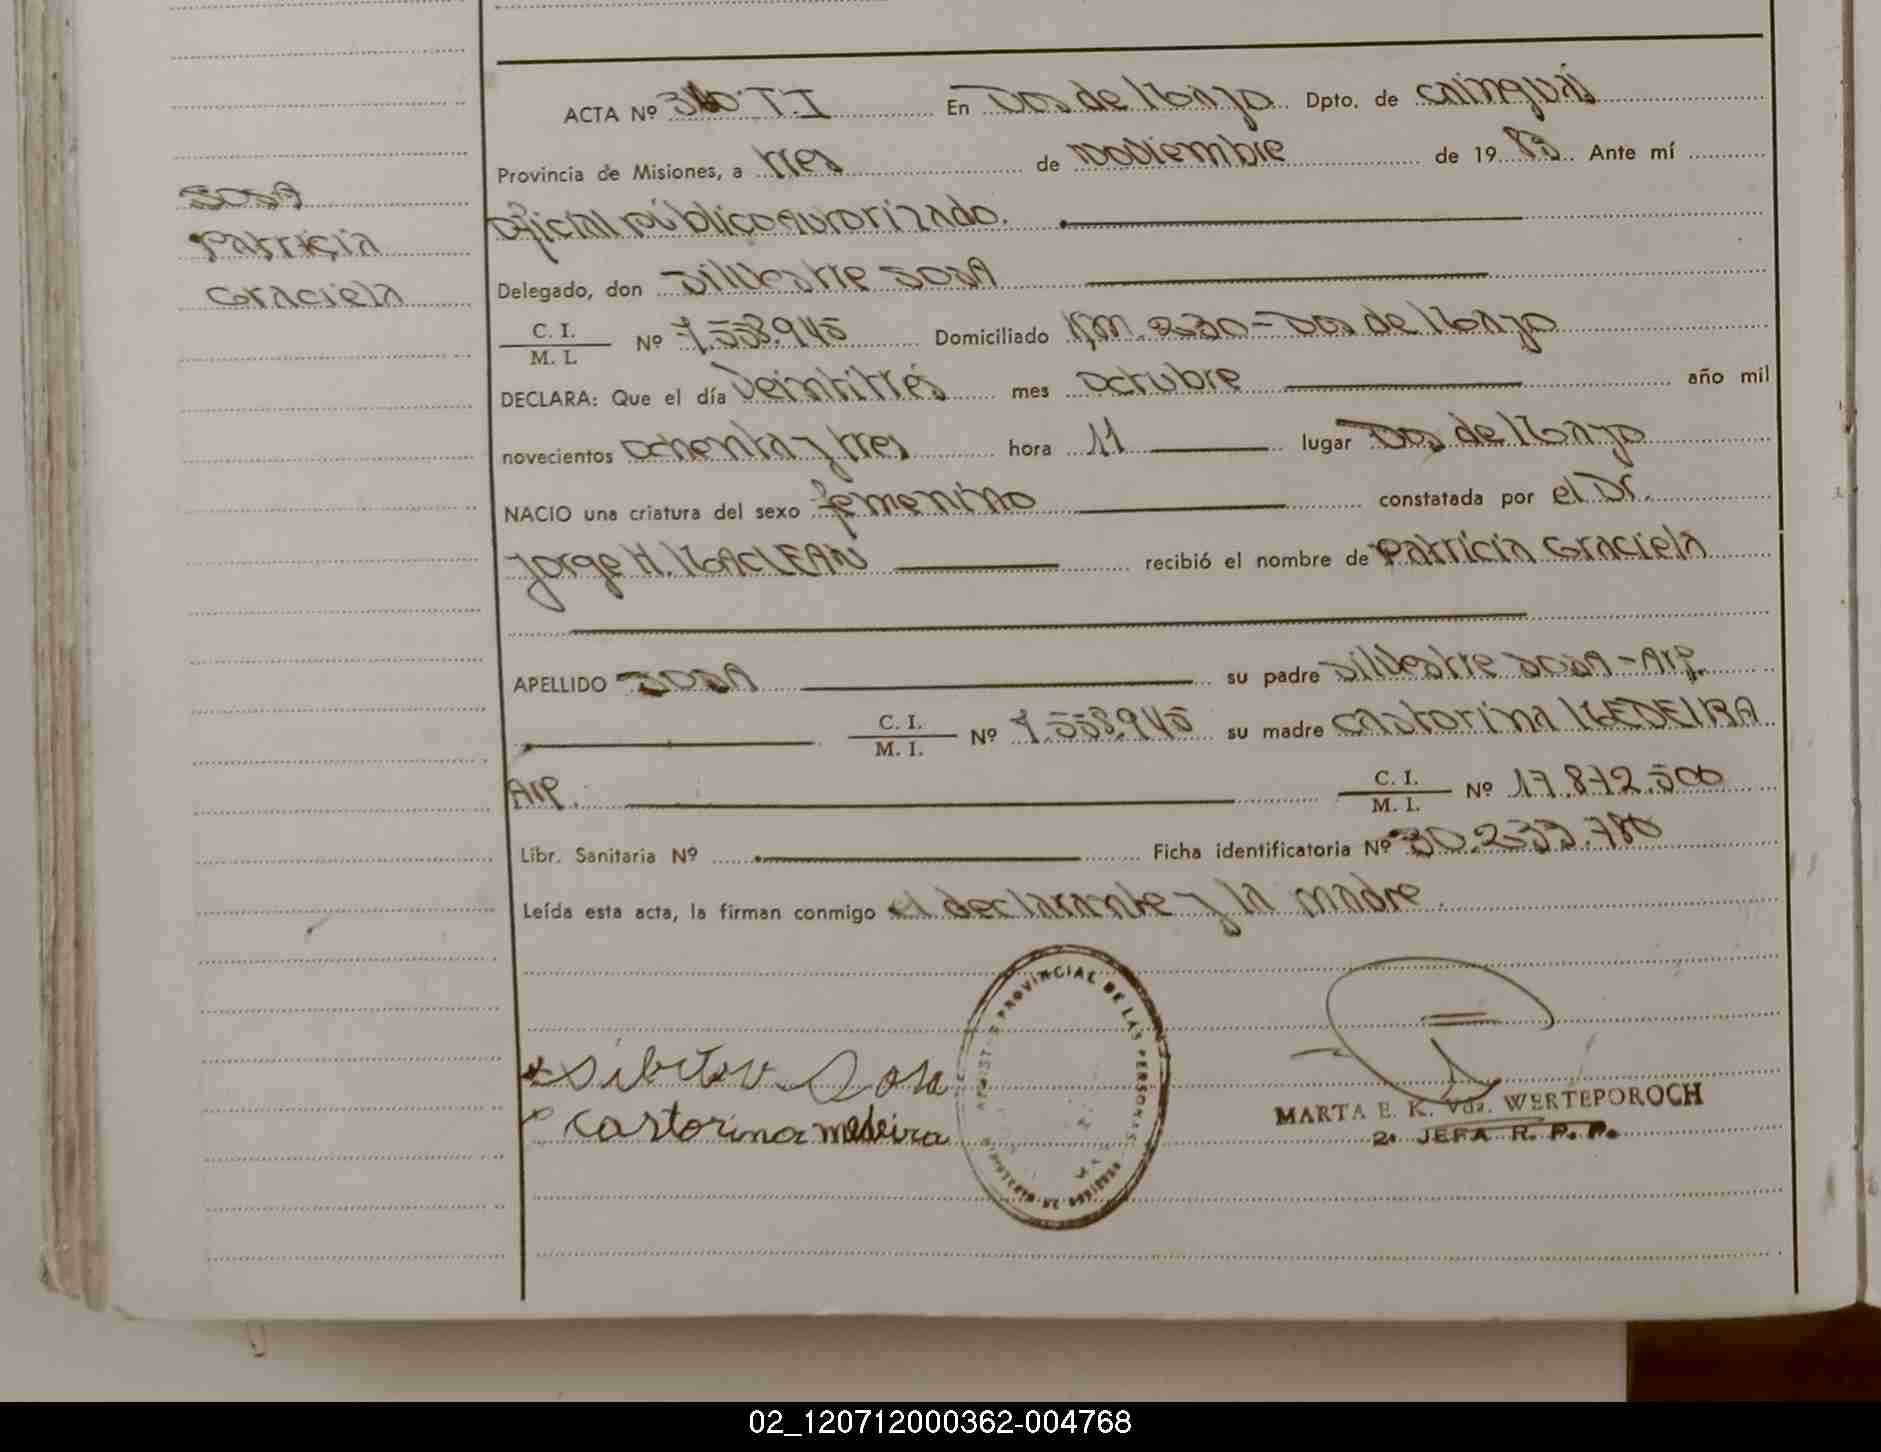 SOSA
Patricia
Graciela
ACTA Nº 340 T.I En Dos de Mayo Dpto. de Cainguás
Provincia de Misiones, a tres de noviembre de 19 83 Ante mí
Oficial público autorizado.
Delegado, don Silvestre SOSA
C. I.
M. I. Nº 7.558.945 Domiciliado Km. 230 - Dos de Mayo
DECLARA: Que el día veintitrés mes octubre año mil
novecientos ochenta y tres hora 11 lugar Dos de Mayo
NACIO una criatura del sexo femenino constatada por el Dr.
Jorge H. MACLEAN recibió el nombre de Patricia Graciela
APELLIDO SOSA su padre Silvestre SOSA - Arg.
C. I.
M. I. Nº 7.558.945 su madre Castorina MEDEIRA
Arg. C. I.
M. I. Nº 17.872.500
Libr. Sanitaria Nº Ficha identificatoria Nº 30.233.780
Leída esta acta, la firman conmigo el declarante y la madre.
PROVINCIAL DE LAS PERSONAS
Sosa
Castorina medeira
MARTA E. K. Vda. WERTEPOROCH
2ª JEFA R. P. P.
02_120712000362-004768